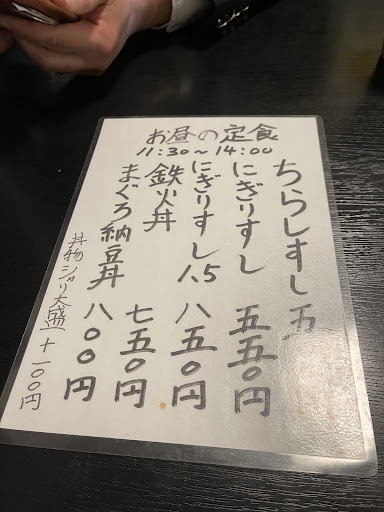 お昼の定食
11:30~14:00
ちらしすし 五
にぎりすし 五五〇円
にぎりすし1.5 八五〇円
鉄火丼 七五〇円
まぐろ納豆丼 八〇〇円
丼物シャリ大盛+一〇〇円